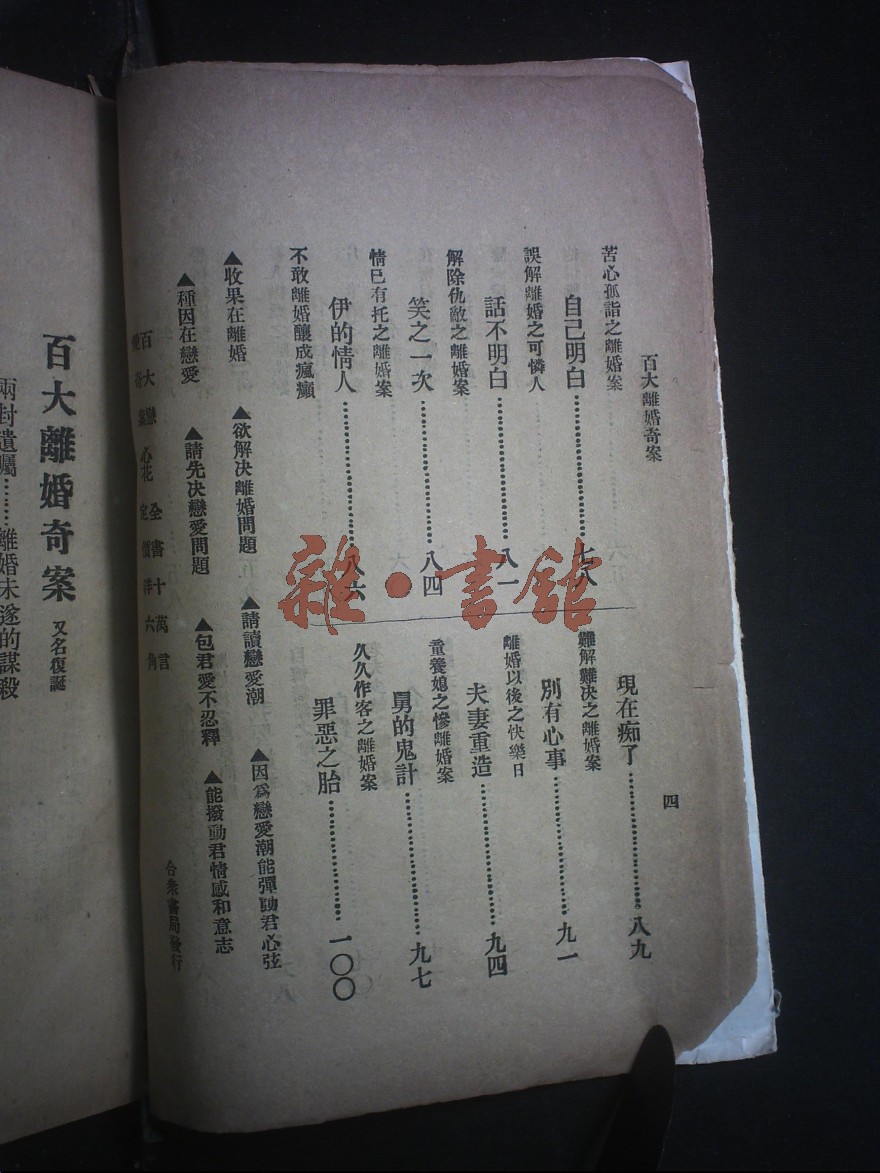 百大離婚奇案
四
苦心孤詣之離婚案
自己明白……七八
誤解離婚之可憐人
話不明白……八一
解除仇敵之離婚案
笑之一次……八四
情已有托之離婚案
伊的情人……八六
不敢離婚釀成瘋癲
現在痴了……八九
難解難決之離婚案
別有心事……九一
離婚以後之快樂日
夫妻重造……九四
童養媳之慘離婚案
舅的鬼計……九七
久久作客之離婚案
罪惡之胎……一〇〇
▲收果在離婚 ▲欲解决離婚問題 ▲請讀戀愛潮 ▲因爲戀愛潮能彈動君心弦
▲種因在戀愛 ▲請先决戀愛問題 ▲包君愛不忍釋 ▲能撥動君情感和意志
百大戀 心花 全書十萬言
定價洋六角
合衆書局發行
百大離婚奇案 又名復誕
兩封遺囑……離婚未遂的謀殺
雜·書館